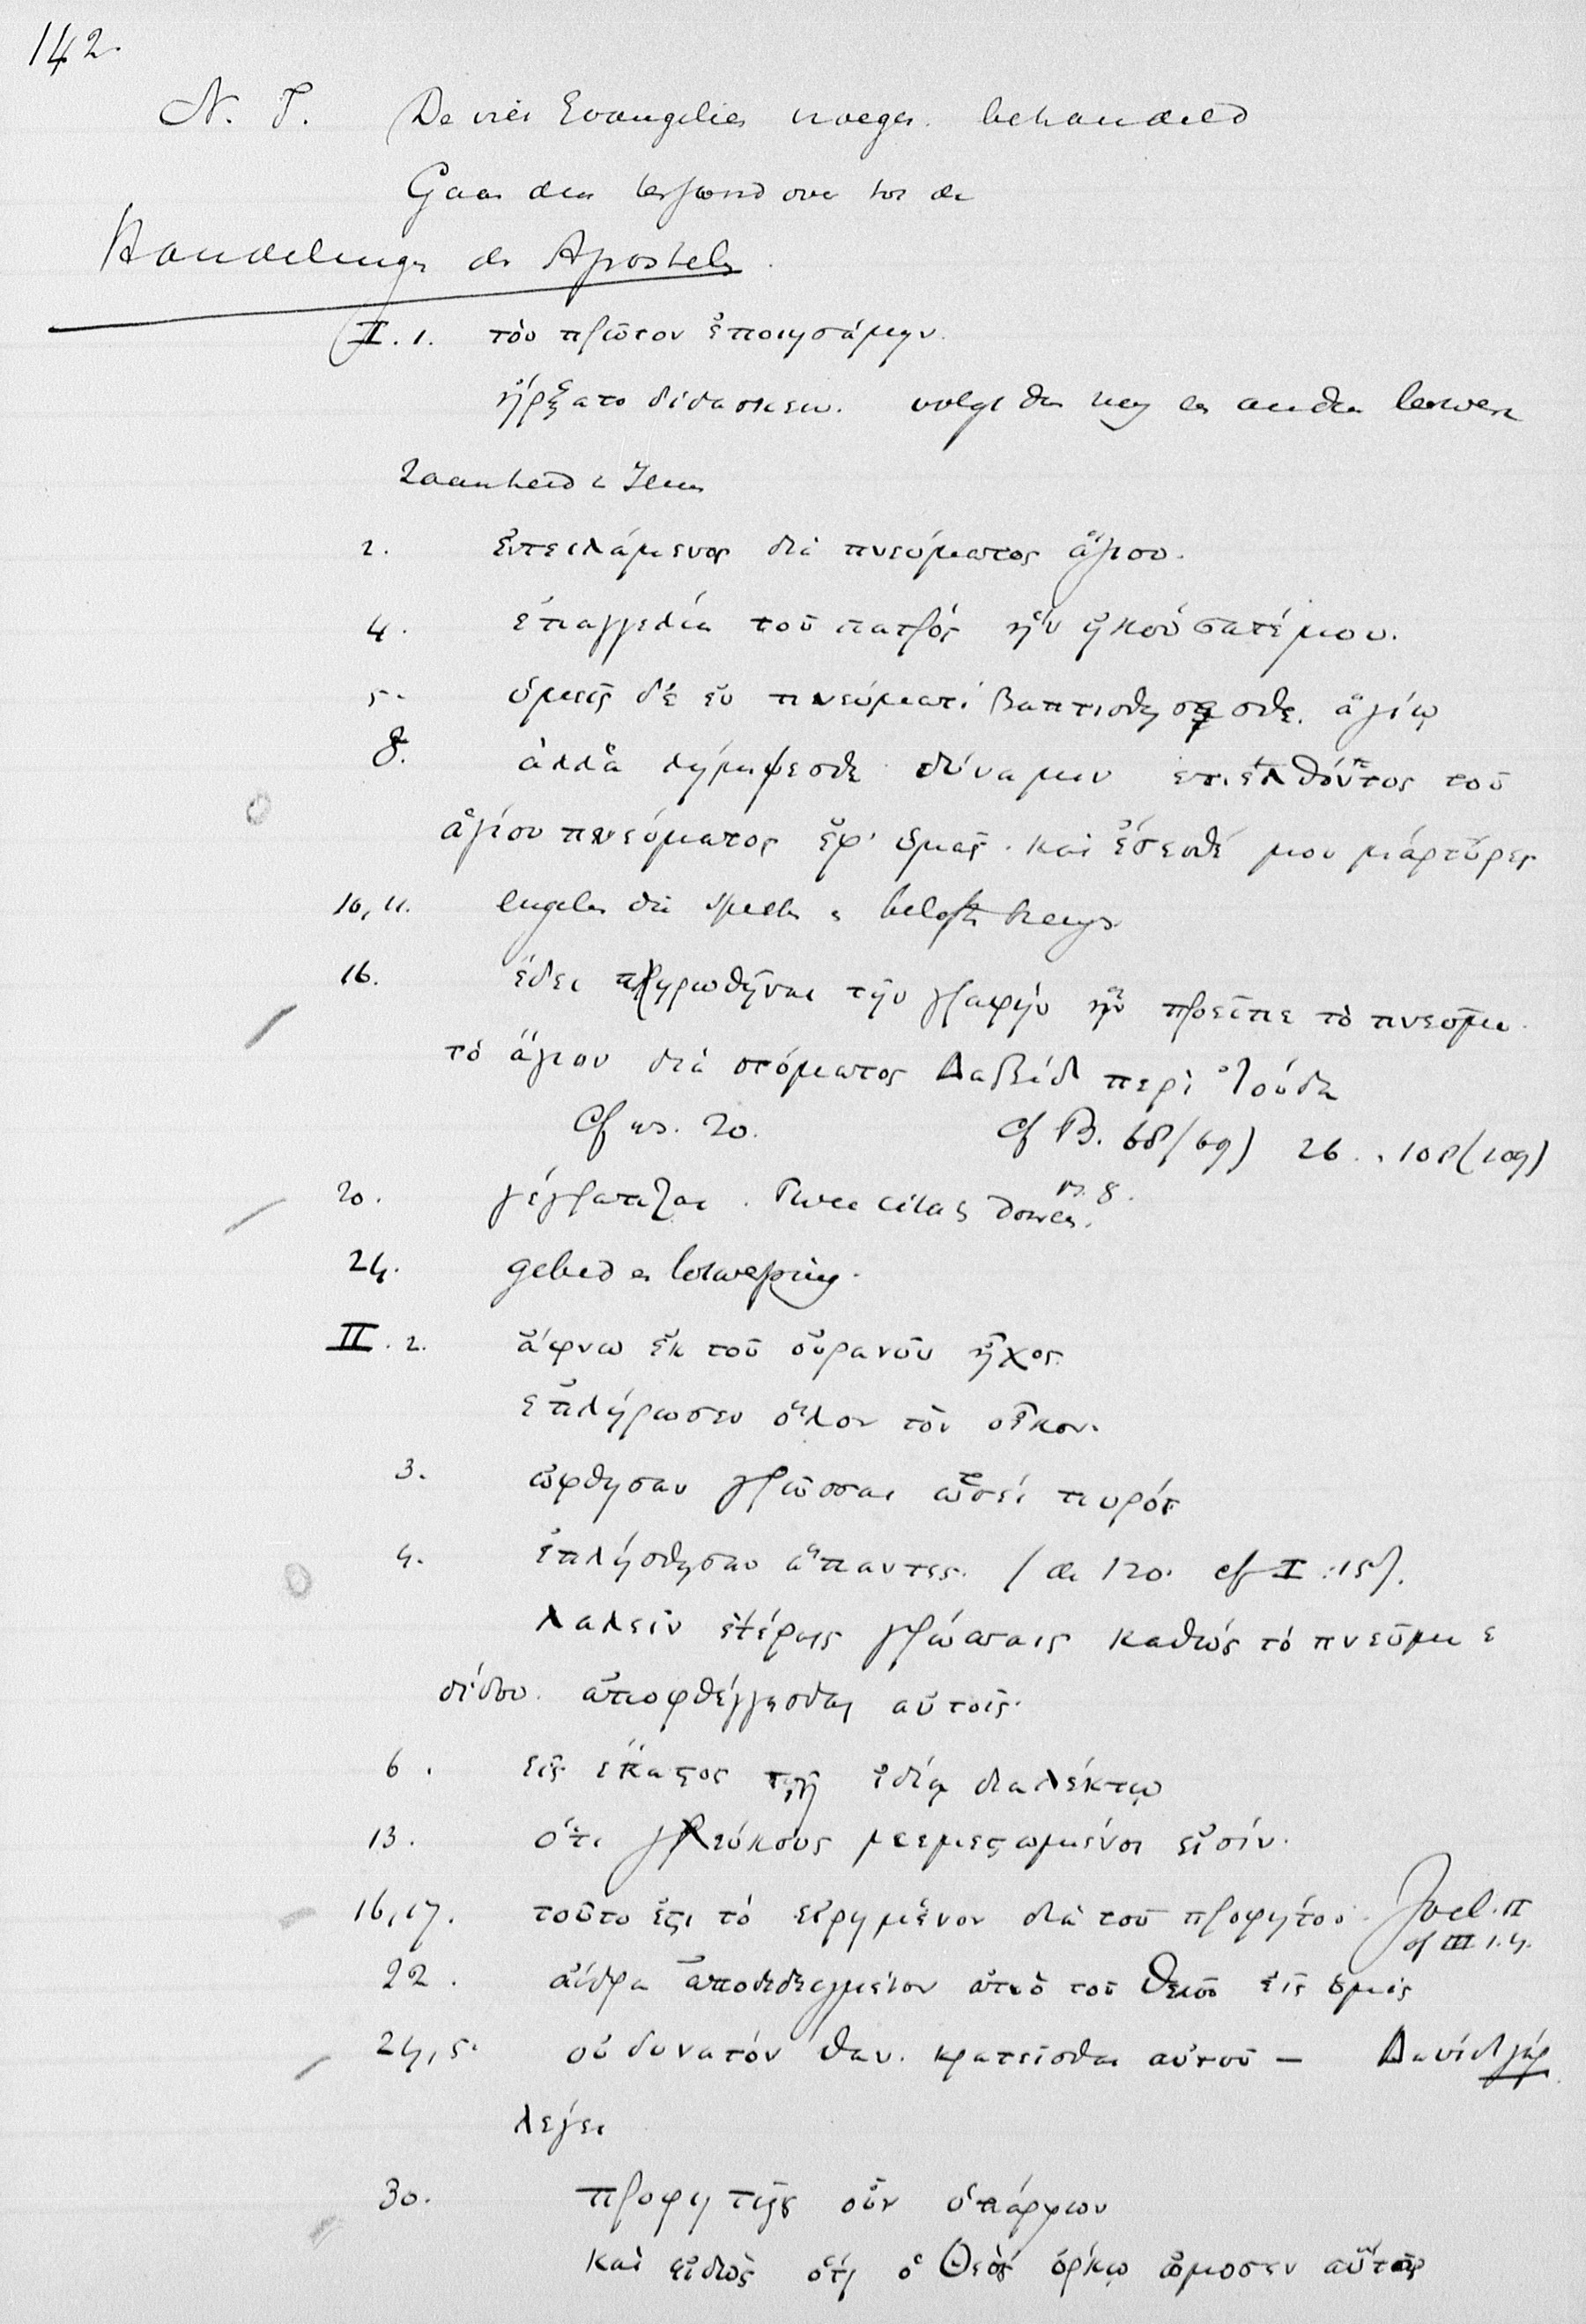 142.
N. T. De vier Evangelies vroeger behandeld
Gaan den terstond over tot de
Handelingen der Apostelen.
I. 1. τὸν πρῶτον ἐποιησάμην.
ἤρξατο διδασκειν. volgt den nog en ander
zaamheid v Jezus
2. ἐντειλάμενος διὰ πνεύματος ἁγίου.
4. ἐπαγγελία τοῦ πατρός ἣν ἠκούσατέ μου.
5. ὑμεῖς δέ ἐν πνεύματί βαπτισθησεσθε. ἁγίῳ
8. ἀλλὰ λήμψεσθε δύναμιν επιελθόντος τοῦ
ἁγίου πνεύματος ἐφ' ὑμᾶς. καὶ ἔσεσθέ μου μάρτυρες
10, 11. engelen die spreken e belofte brengen
16. ἔδει πληρωθῆναι τὴν γραφήν ἣν προεῖπε τὸ πνεῦμα
τὸ ἅγιον διὰ στόματος Δαβὶδ περὶ Ἰούδα
Cf vs. 20. cf Ps. 68/69) 26. , 108(109)
20. γέγραπται. Twee citaten vs. 8.
24. gebed en lotwerping.
II. 2. ἄφνω ἐκ τοῦ οὐρανοῦ ἦχος.
ἐπλήρωσεν ὅλον τὸν οἶκον.
3. ὤφθησαν γλῶσσαι ὡσεί πυρός
4. ἐπλήσθησαν ἅπαντες. (de 120. cf I. 15).
λαλεῖν ἑτέραις γλώσσαις καθώς τό πνεῦμα ε
δίδου. ἀποφθέγγεσθαι αὐτοῖς.
6. εἷς ἕκαϛος τῇ ἰδίᾳ διαλέκτῳ
13. ὅτι γλεύκους μεμεϛωμένοι εἰσίν.
16, 17. τοῦτο ἐϛι τό εἰρημένον διὰ τοῦ προφήτου. Joel. II
cf III 1. 4.
22. ἄνδρα ἀποδεδειγμένον ἀπὸ τοῦ Θεοῦ εἰς ὑμᾶς
24, 5. οὐ δυνατόν θαν. κρατεῖσθαι αὐτοῦ — Δαυίδ γάρ
λέγει
30. προφητης οὖν ὑπάρχων
καὶ εἰδὼς ὅτι ὁ Θεὸς ὅρκῳ ὤμοσεν αὐτῷ